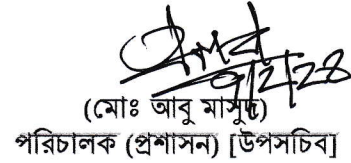 (মোঃ আবু মাসুদ)
পরিচালক (প্রশাসন) [উপসচিব]